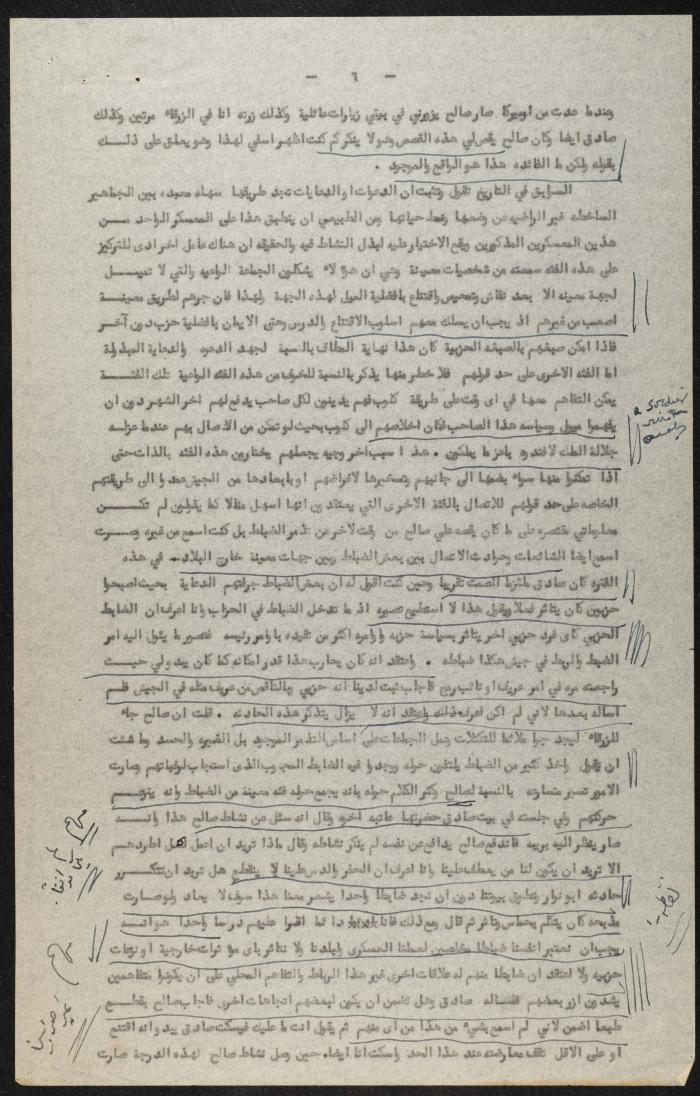 - ٦ -
وعندما عدت من اميركا صار صالح يزورني في بيتي زيارات عائلية وكذلك زرته انا في الزرقاء مرتين وكذلك
صادق ايضا وكان صالح يقص لي هذه القصص وهو لا ينكر كم كنت اظهر اسفي لهذا وهو يعلق على ذلك
بقوله ولكن ما الفائده هذا هو الواقع والموجود .
السوابق في التاريخ تقول وتثبت ان الدعوات او الدعايات تجد طريقها سهله معبده بين الجماهير
الساخطه غير الراضيه عن وضعها ونمط حياتها ومن الطبيعي ان ينطبق هذا على المعسكر الواحد من
هذين المعسكرين المذكورين ويقع الاختيار عليه لبذل النشاط فيه والحقيقه ان هناك عامل اخر ادى للتركيز
على هذه الفئه سمعته من شخصيات معينة وهي ان هؤلاء يشكلون الجماعة الواعيه والتي لا تميل
لجهة معينه الا بعد نقاش وتمحيص واقتناع بافضلية الميل لهذه الجهة ولهذا فان جرهم لطريق معينة
اصعب من غيرهم اذ يجب ان يسلك معهم اسلوب الاقتناع والدرس وحتى الايمان بافضلية حزب دون آخر
فاذا امكن صبغهم بالصبغه الحزبية كان هذا نهاية المطاف بالنسبة لجهد الدعوه والدعاية المبذولة
اما الفئه الاخرى على حد قولهم فلا خطر منها يذكر بالنسبة للخوف من هذه الفئه الواعية تلك الفئة
يمكن التفاهم معها في اى وقت على طريقة كلوب فهم يدينون لكل صاحب يدفع لهم اخر الشهر دون ان
يفهموا ميول وسياسه هذا الصاحب فكان اخلاصهم الى كلوب بحيث لو تمكن من الاتصال بهم عندما عزله
جلالة الملك لافتدوه باعز ما يملكون . هذا سبب اخر وجيه يجعلهم يختارون هذه الفئه بالذات حتى
اذا تمكنوا منها سواء بضمها الى جانبهم وتسخيرها لاغراضهم او بابعادها من الجيش عمدوا الى طريقتهم
الخاصه على حد قولهم للاتصال بالفئة الاخرى التي يعتقدون انها اسهل منالا كما يقولون لم تكن
معلوماتي مقتصره على ما كان يقصه علي صالح من وقت لاخر عن تذمر الضباط بل كنت اسمع من غيره وصرت
اسمع ايضا الشائعات وحوادث الاتصال بين بعض الضباط وبين جهات معينة خارج البلاد . في هذه
الفتره كان صادق ملتزما الصمت تقريبا وحين كنت اقول له ان بعض الضباط جرفتهم الدعاية بحيث اصبحوا
حزبين كان يتاثر فعلا ويقول هذا لا استطيع تصوره اذ ما تدخل الضباط في الحزاب وانا اعرف ان الضابط
الحزبي كاى فرد حزبي اخر يتاثر بسياسة حزبه واوامره اكثر من تقيده باوامر رئيسه فتصور ما يئول اليه امر
الضبط والربط في جيش هكذا ضباطه . واعتقد انه كان يحارب هذا قدر امكانه كما كان يبدو لي حيث
راجعته مره في امر عريف او نائب فاجاب ثبت لدينا انه حزبي وبالناقص من عريف مثله في الجيش فلم
اساله بعدها لاني لم اكن اعرف ذلك واعتقد انه لا يزال يتذكر هذه الحادثه . قلت ان صالح جاء
للزرقاء ليجد جوا ملائما للتكتلات وعمل الجماعات على اساس التذمر الموجود بل الغيره والحسد وما شئت
ان يقول واخذ كثير من الضباط يلتفون حوله ووجدوا فيه الضابط المحبوب الذى استجاب لرغباتهم وصارت
الامور تصبر متعاونه بالنسبة لصالح وكثر الكلام حوله بانه يجمع حوله فئه معينة من الضباط وانه يتزعم
حركتهم وفي جلسته في بيت صادق حضرتها عاتبه اخوه وقال انه سئل عن نشاط صالح هذا وانه
صار ينظر اليه بريبه فاندفع صالح يدافع عن نفسه لم ينكر نشاطه وقال ماذا تريد ان اعمل هل اطردهم
الا تريد ان يكون لنا من يعطف علينا وانا اعرف ان الحفر والدس علينا لا ينقطع هل تريد ان تتكرر
حادثه ابو نوار وتطوق بيوتنا دون ان نجد ضابطا واحدا يشعر معنا هذا سوف لا يعاد ولو صارت
مذبحه كان يتكلم بحماس وتاثر ثم قال ومع ذلك فانا دائما اقرا عليهم درسا واحدا هو انه
يجب ان نعتبر انفسنا ضباطا مخلصين لعملنا العسكرى ولبلدنا ولا نتاثر باى مؤثرات خارجية او نزعات
حزبيه ولا اعتقد ان ضابطا منهم له علاقات اخرى غير هذا الرباط والتفاهم المحلي على ان يكونوا متفاهمين
يشدون ازر بعضهم فلساله صادق وهل تضمن ان يكون لبعضهم اتجاهات اخرى فاجاب صالح بقطع
طبعا اضمن لاني لم اسمع بشيء من هذا من اى منهم ثم يقول انت ما عليك فيسكت صادق يبدو انه اقتنع
او على الاقل تقف معارضته عند هذا الحد واسكت انا ايضا . حين وصل نشاط صالح لهذه الدرجة صارت
a soldier